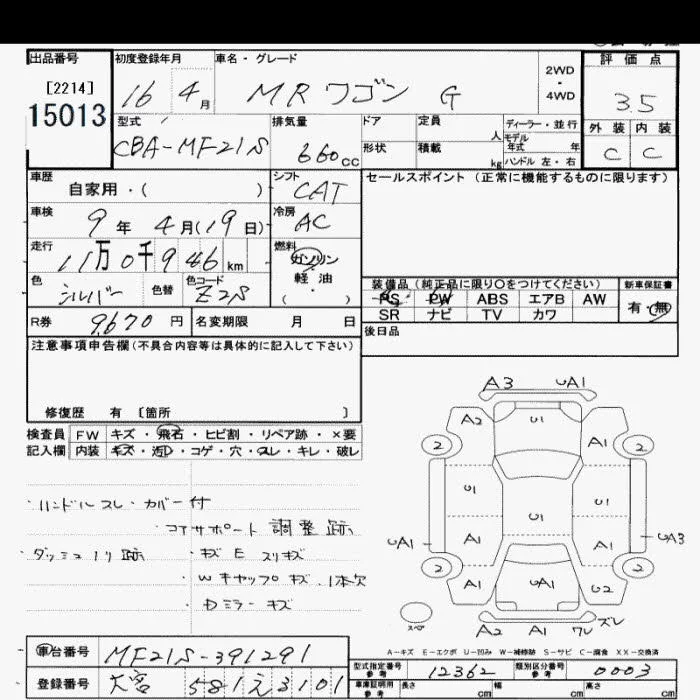 出品番号 初度登録年月 車名・グレード 2WD・4WD 評価点
[2214]
15013 16 4月 MRワゴン G 3.5
型式 排気量 ドア 定員 人 ディーラー・並行 外装 内装
CBA-MF21S 660cc 形状 積載 kg モデル年式 年 ハンドル 左・右 C C
車歴 自家用・( ) シフト CAT セールスポイント(正常に機能するものに限ります)
車検 9年 4月(19日) 冷房 AC
走行 11万0千946km 燃料 ガソリン・軽油・( )
色 シルバー 色替 色コード Z2S
装備品(純正品に限り○をつけてください) 新車保証書
PS PW ABS エアB AW 有・無
SR ナビ TV カワ
R券 9,670円 名変期限 月 日 後日品
注意事項申告欄(不具合内容等は具体的に記入して下さい)
修復歴 有 〔箇所 〕
検査員記入欄 FW キズ・飛石・ヒビ割・リペア跡・×要
内装 キズ・汚レ・コゲ・穴・スレ・キレ・破レ
・ハンドルスレ・カバー付
・コアサポート調整跡
・ダッシュ
・キズE スリキズ
・Wキャップキズ 1本欠
・Dミラーキズ
A3 UA1
A2 U1 A1
2 2
U1 U1
U1
UA1 A1 A3 UA3
2 2
A1 UA1 U2
スペア
A2 A1 ズレ
A=キズ E=エクボ U=凹み W=補修跡 S=サビ C=腐食 XX=交換済
車台番号 MF21S-391291
登録番号 581え3101
型式指定番号 参考 12362 類別区分番号 参考 0003
車庫証明用 参考 長さ cm 幅 cm 高さ cm